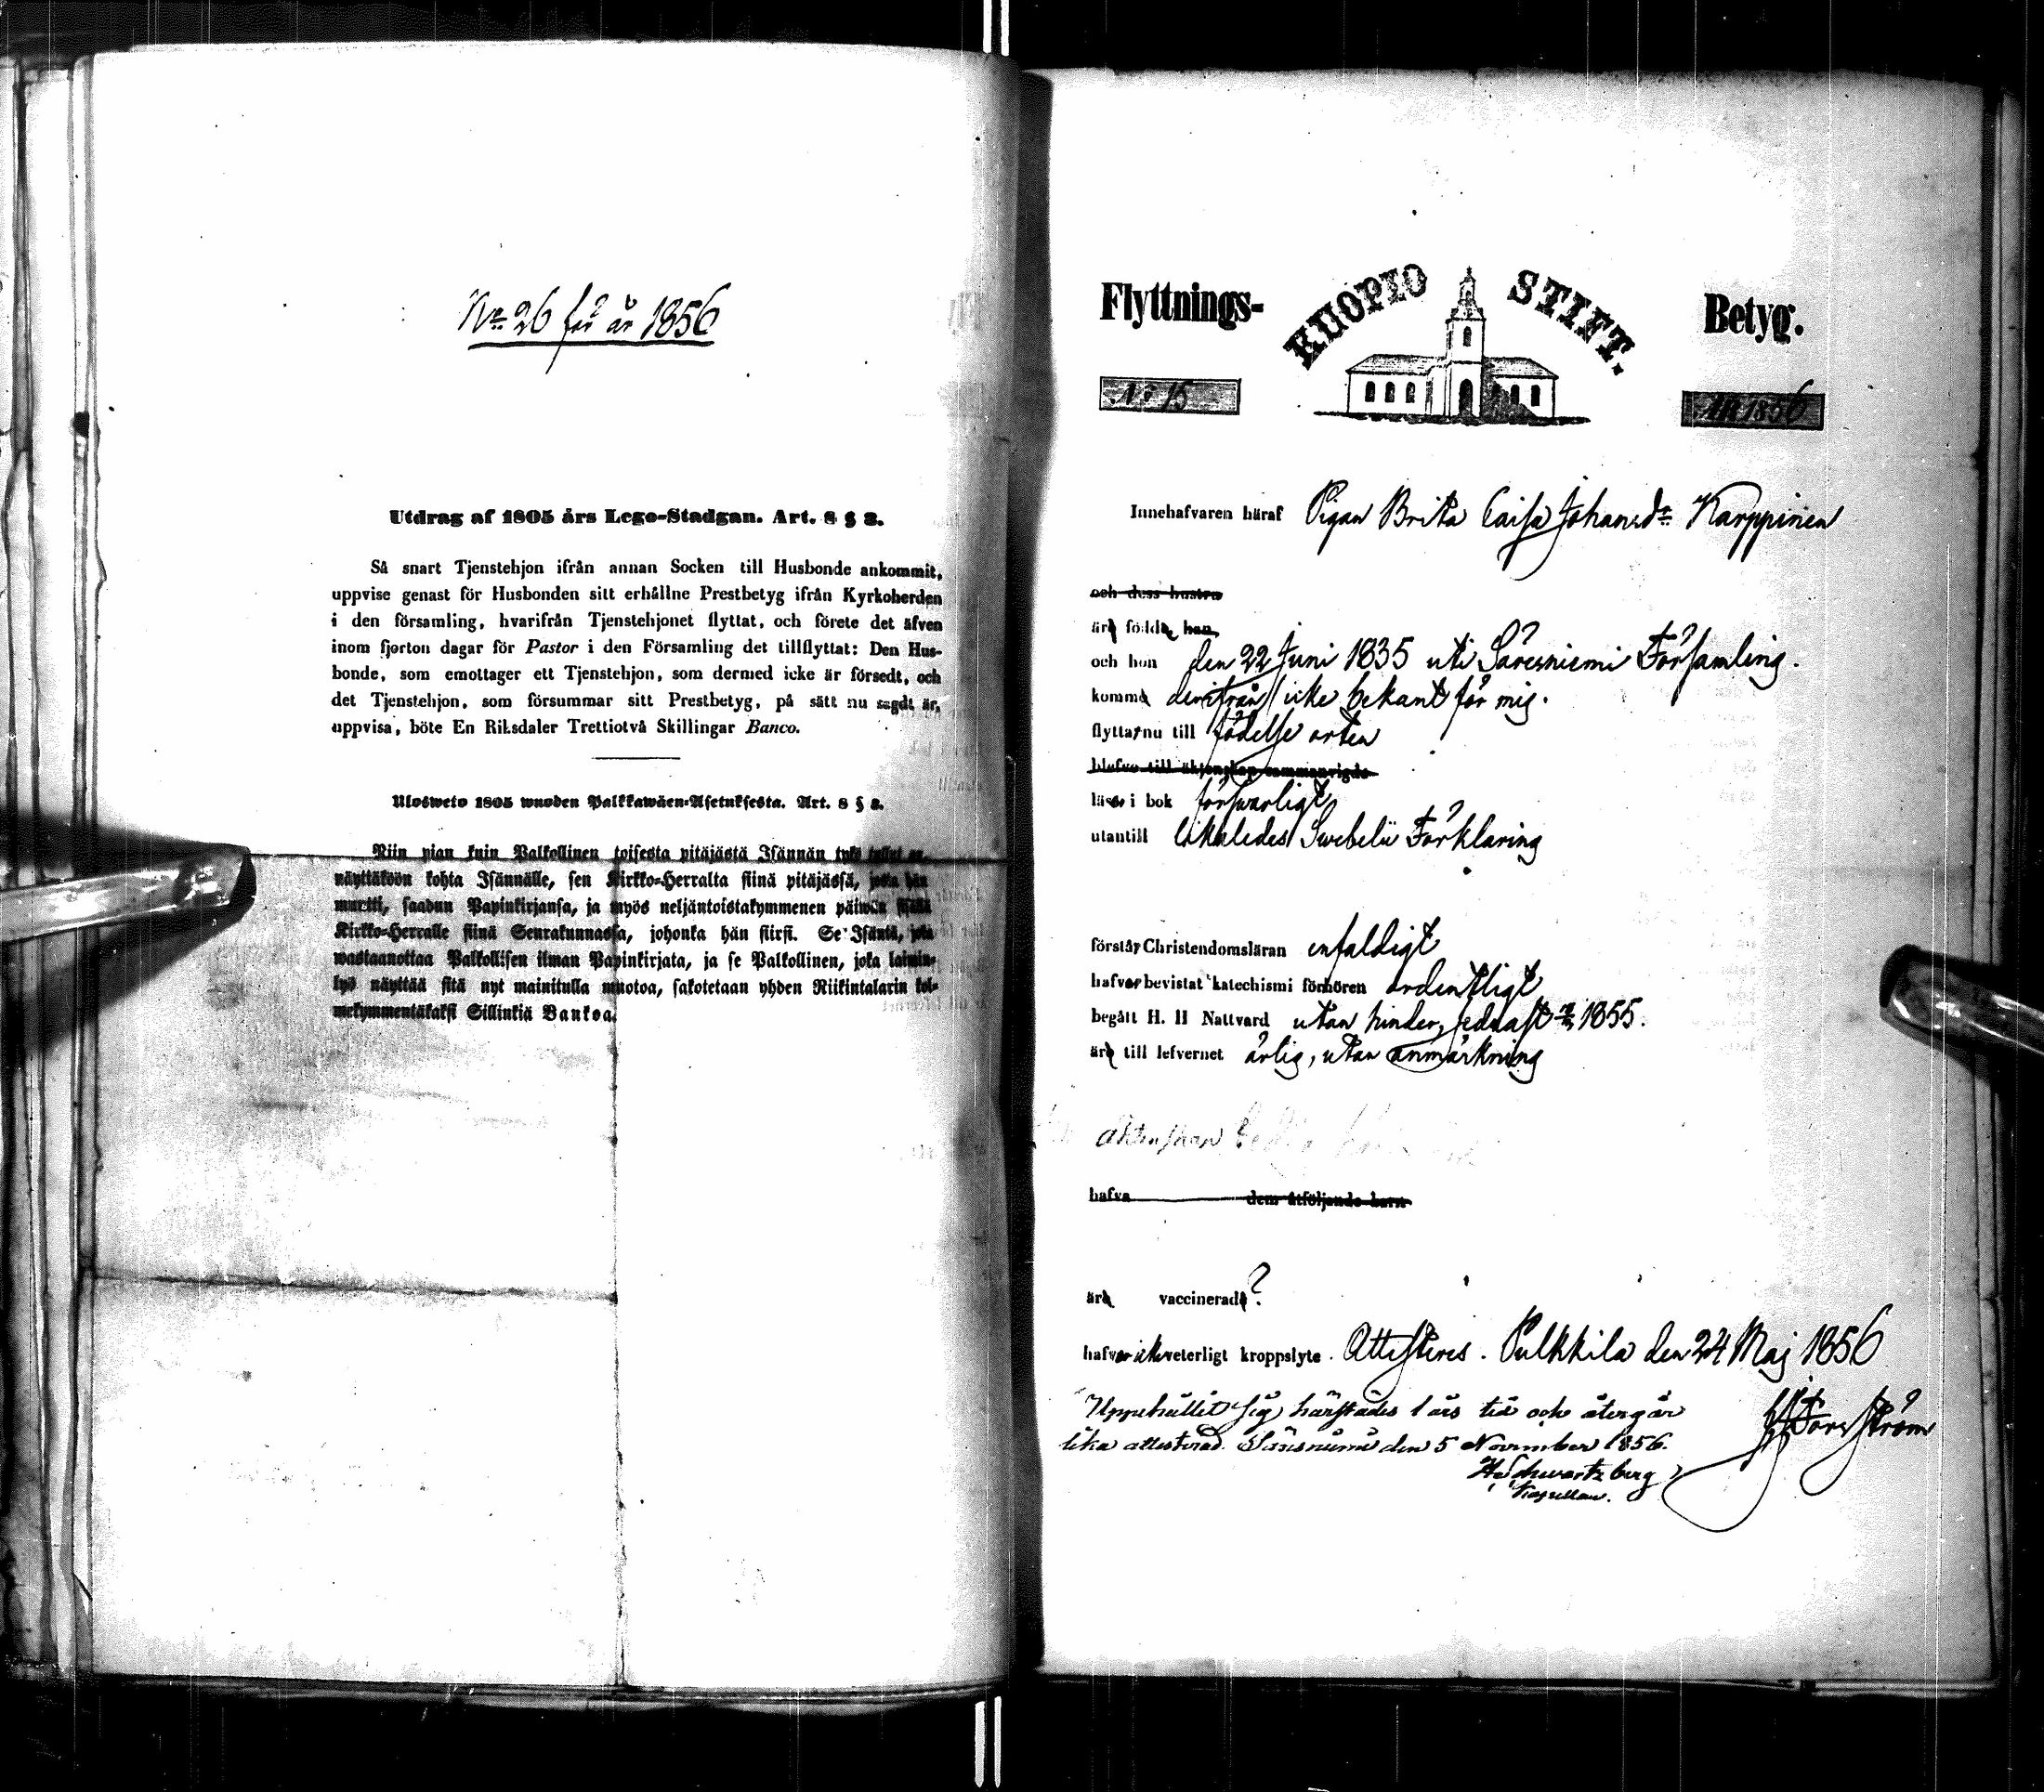 No 26 för år 1856
Utdrag af 1805 års Lego-Stadgan. Art. 8 § 2.
Så snart Tjenstehjon ifrån annan Socken till Husbonde ankommit,
uppvise genast för Husbonden sitt erhållne Prestbetyg ifrån Kyrkoherden
i den församling, hvarifrån Tjenstehjonet flyttat, och förete det äfven
inom fjorton dagar för Pastor i den Församling det tillflyttat: Den Hus-
bonde, som emottager ett Tjenstehjon, som dermed icke är försedt, och
det Tjenstehjon, som försummar sitt Prestbetyg, på sätt nu sagdt är,
uppvisa, böte En Riksdaler Trettiotvå Skillingar Banco.
Ulosweto 1805 wuoden Palkkawäen-Asetuksesta. Art. 8 § 2.
Niin pian kuin Palkollinen toisesta pitäjästä Isännän tykö tullut on,
näyttäköön kohta Isännälle, sen Kirkko-Herralta siinä pitäjässä, josta hän
muutti, saadun Papinkirjansa, ja myös neljäntoistakymmenen päiwän sisällä
Kirkko-Herralle siinä Seurakunnassa, johonka hän siirsi. Se Isäntä, joka
wastaanottaa Palkollisen ilman Papinkirjata, ja se Palkollinen, joka laimin-
lyö näyttää sitä nyt mainitulla muotoa, sakotetaan yhden Riikintalarin kol-
mekymmentäkaksi Sillinkiä Bankoa.
Flyttnings- KUOPIO STIFT. Betyg.
No 15 ÅR 1856
Innehafvaren häraf Pigan Brita Caisa Johansdr Karppinen
och dess hustru
är född, han
och hon den 22 Juni 1835 uti Säresniemi Församling.
komma derifrån icke bekant för mig.
flyttar nu till födelse orten
blefvo till äktenskap sammanvigde
läser i bok försvarligt
utantill likaledes Swebelii Förklaring
förstår Christendomsläran enfaldigt
hafver bevistat katechismi förhören ordentligt
begått H. H Nattvard utan hinder, sednast 1855.
är till lefvernet ärlig, utan anmärkning
hafva dem åtföljande barn
är vaccinerad?
hafver icke veterligt kroppslyte. Attesteres. Pulkkila den 24 Maj 1856
Uppehållit sig härstädes 1 års tid och återgår
lika attesterad. Säresniemi den 5 November 1856.
Schwartzberg
Kapellan.